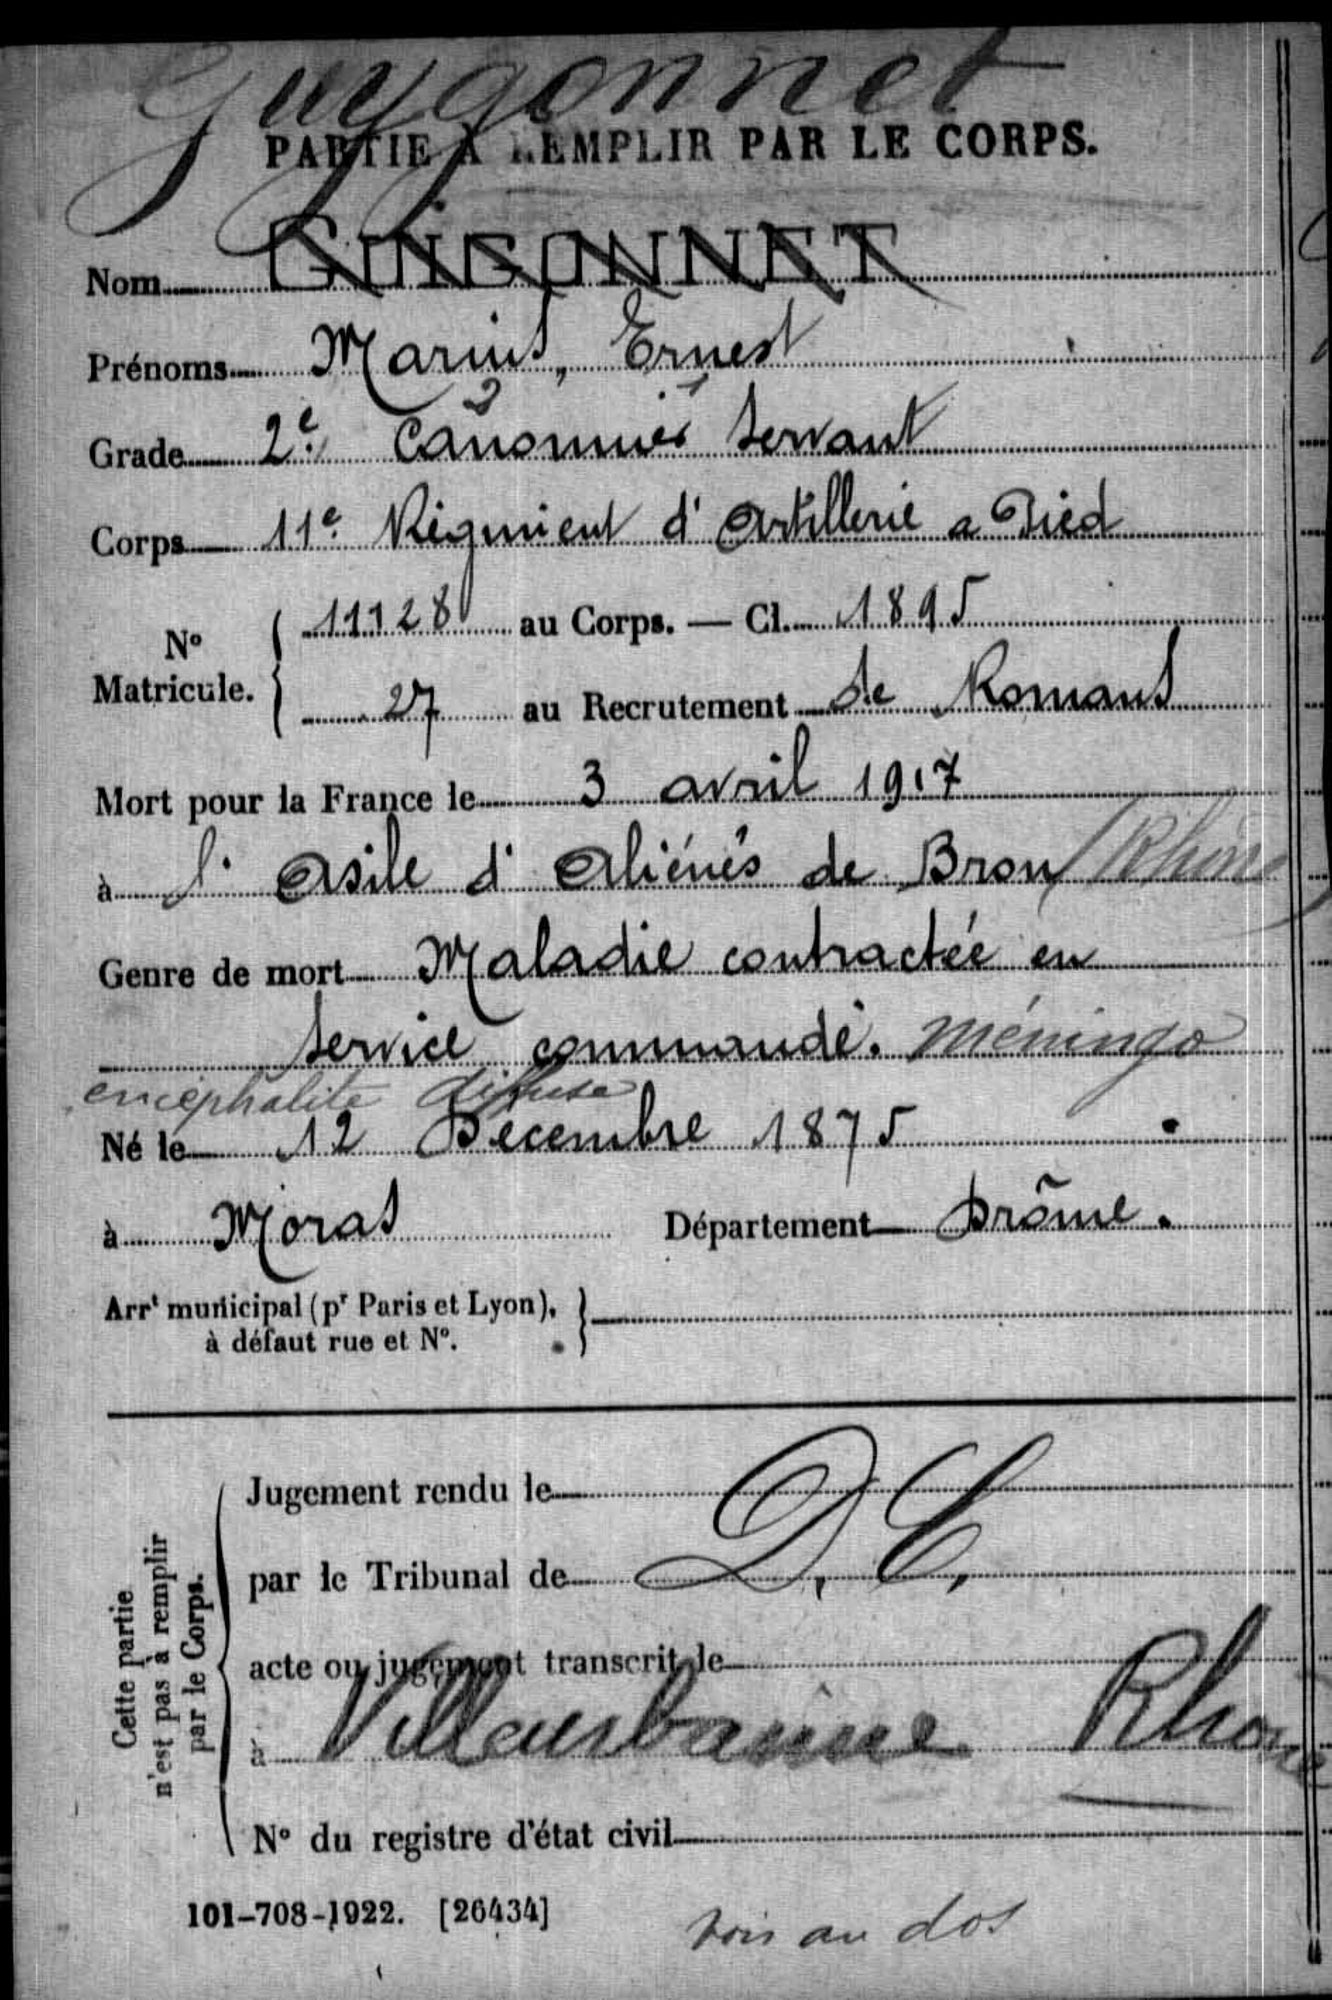 Guygonnet
PARTIE À REMPLIR PAR LE CORPS.
Nom GUIGONNET
Prénoms Marius, Ernest
2 1
Grade 2e Canonnier Servant
Corps 11e Régiment d'Artillerie a Pied
N° Matricule. { 11128 au Corps. — Cl. 1895
27 au Recrutement de Romans
Mort pour la France le 3 avril 1917
à l'Asile d'Aliénés de Bron (Rhône)
Genre de mort Maladie contractée en
service commandé. Méningo
encéphalite diffuse
Né le 12 Décembre 1875
à Moras Département Drôme.
Arrt municipal (pr Paris et Lyon),
à défaut rue et N°.
Cette partie
n'est pas à remplir
par le Corps.
Jugement rendu le
par le Tribunal de D. C.
acte ou jugement transcrit le
à Villeurbanne Rhône
N° du registre d'état civil
101-708-1922. [26434]
voir au dos